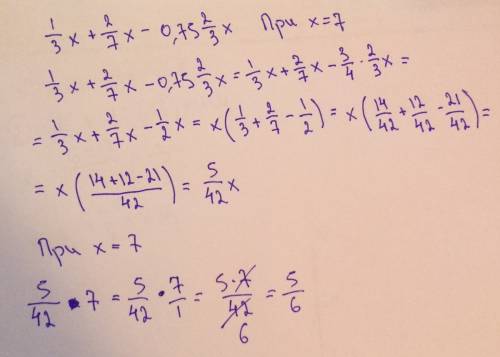 1/3 x + 2/7 x − 0,75 2/3 x При x = 7
1/3 x + 2/7 x − 0,75 2/3 x = 1/3 x + 2/7 x − 3/4 · 2/3 x =
= 1/3 x + 2/7 x − 1/2 x = x (1/3 + 2/7 − 1/2) = x (14/42 + 12/42 − 21/42) =
= x ((14+12−21)/42) = 5/42 x
При x = 7
5/42 · 7 = 5/42 · 7/1 = 5·7/42 = 5/6
6